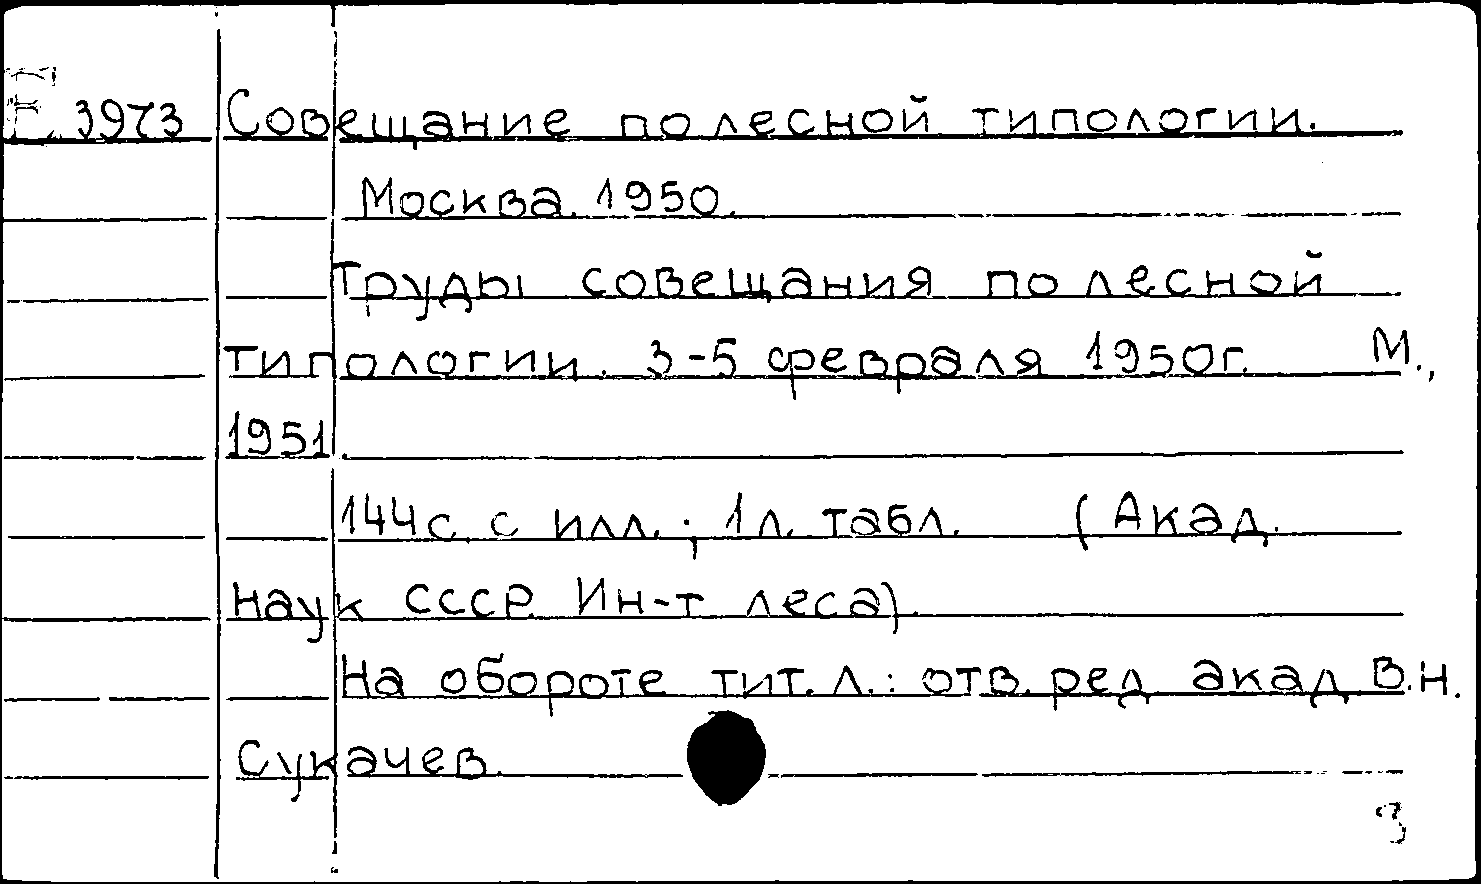 3973 Совещание по лесной типологии.
Москва. 1950.
Труды совещания по лесной
типологии. 3-5 февраля 1950г. М.,
1951.
144с. с илл.; 1л. табл. (Акад.
наук СССР. Ин-т леса).
На обороте тит. л.: отв. ред акад В.Н.
Сукачев.
3